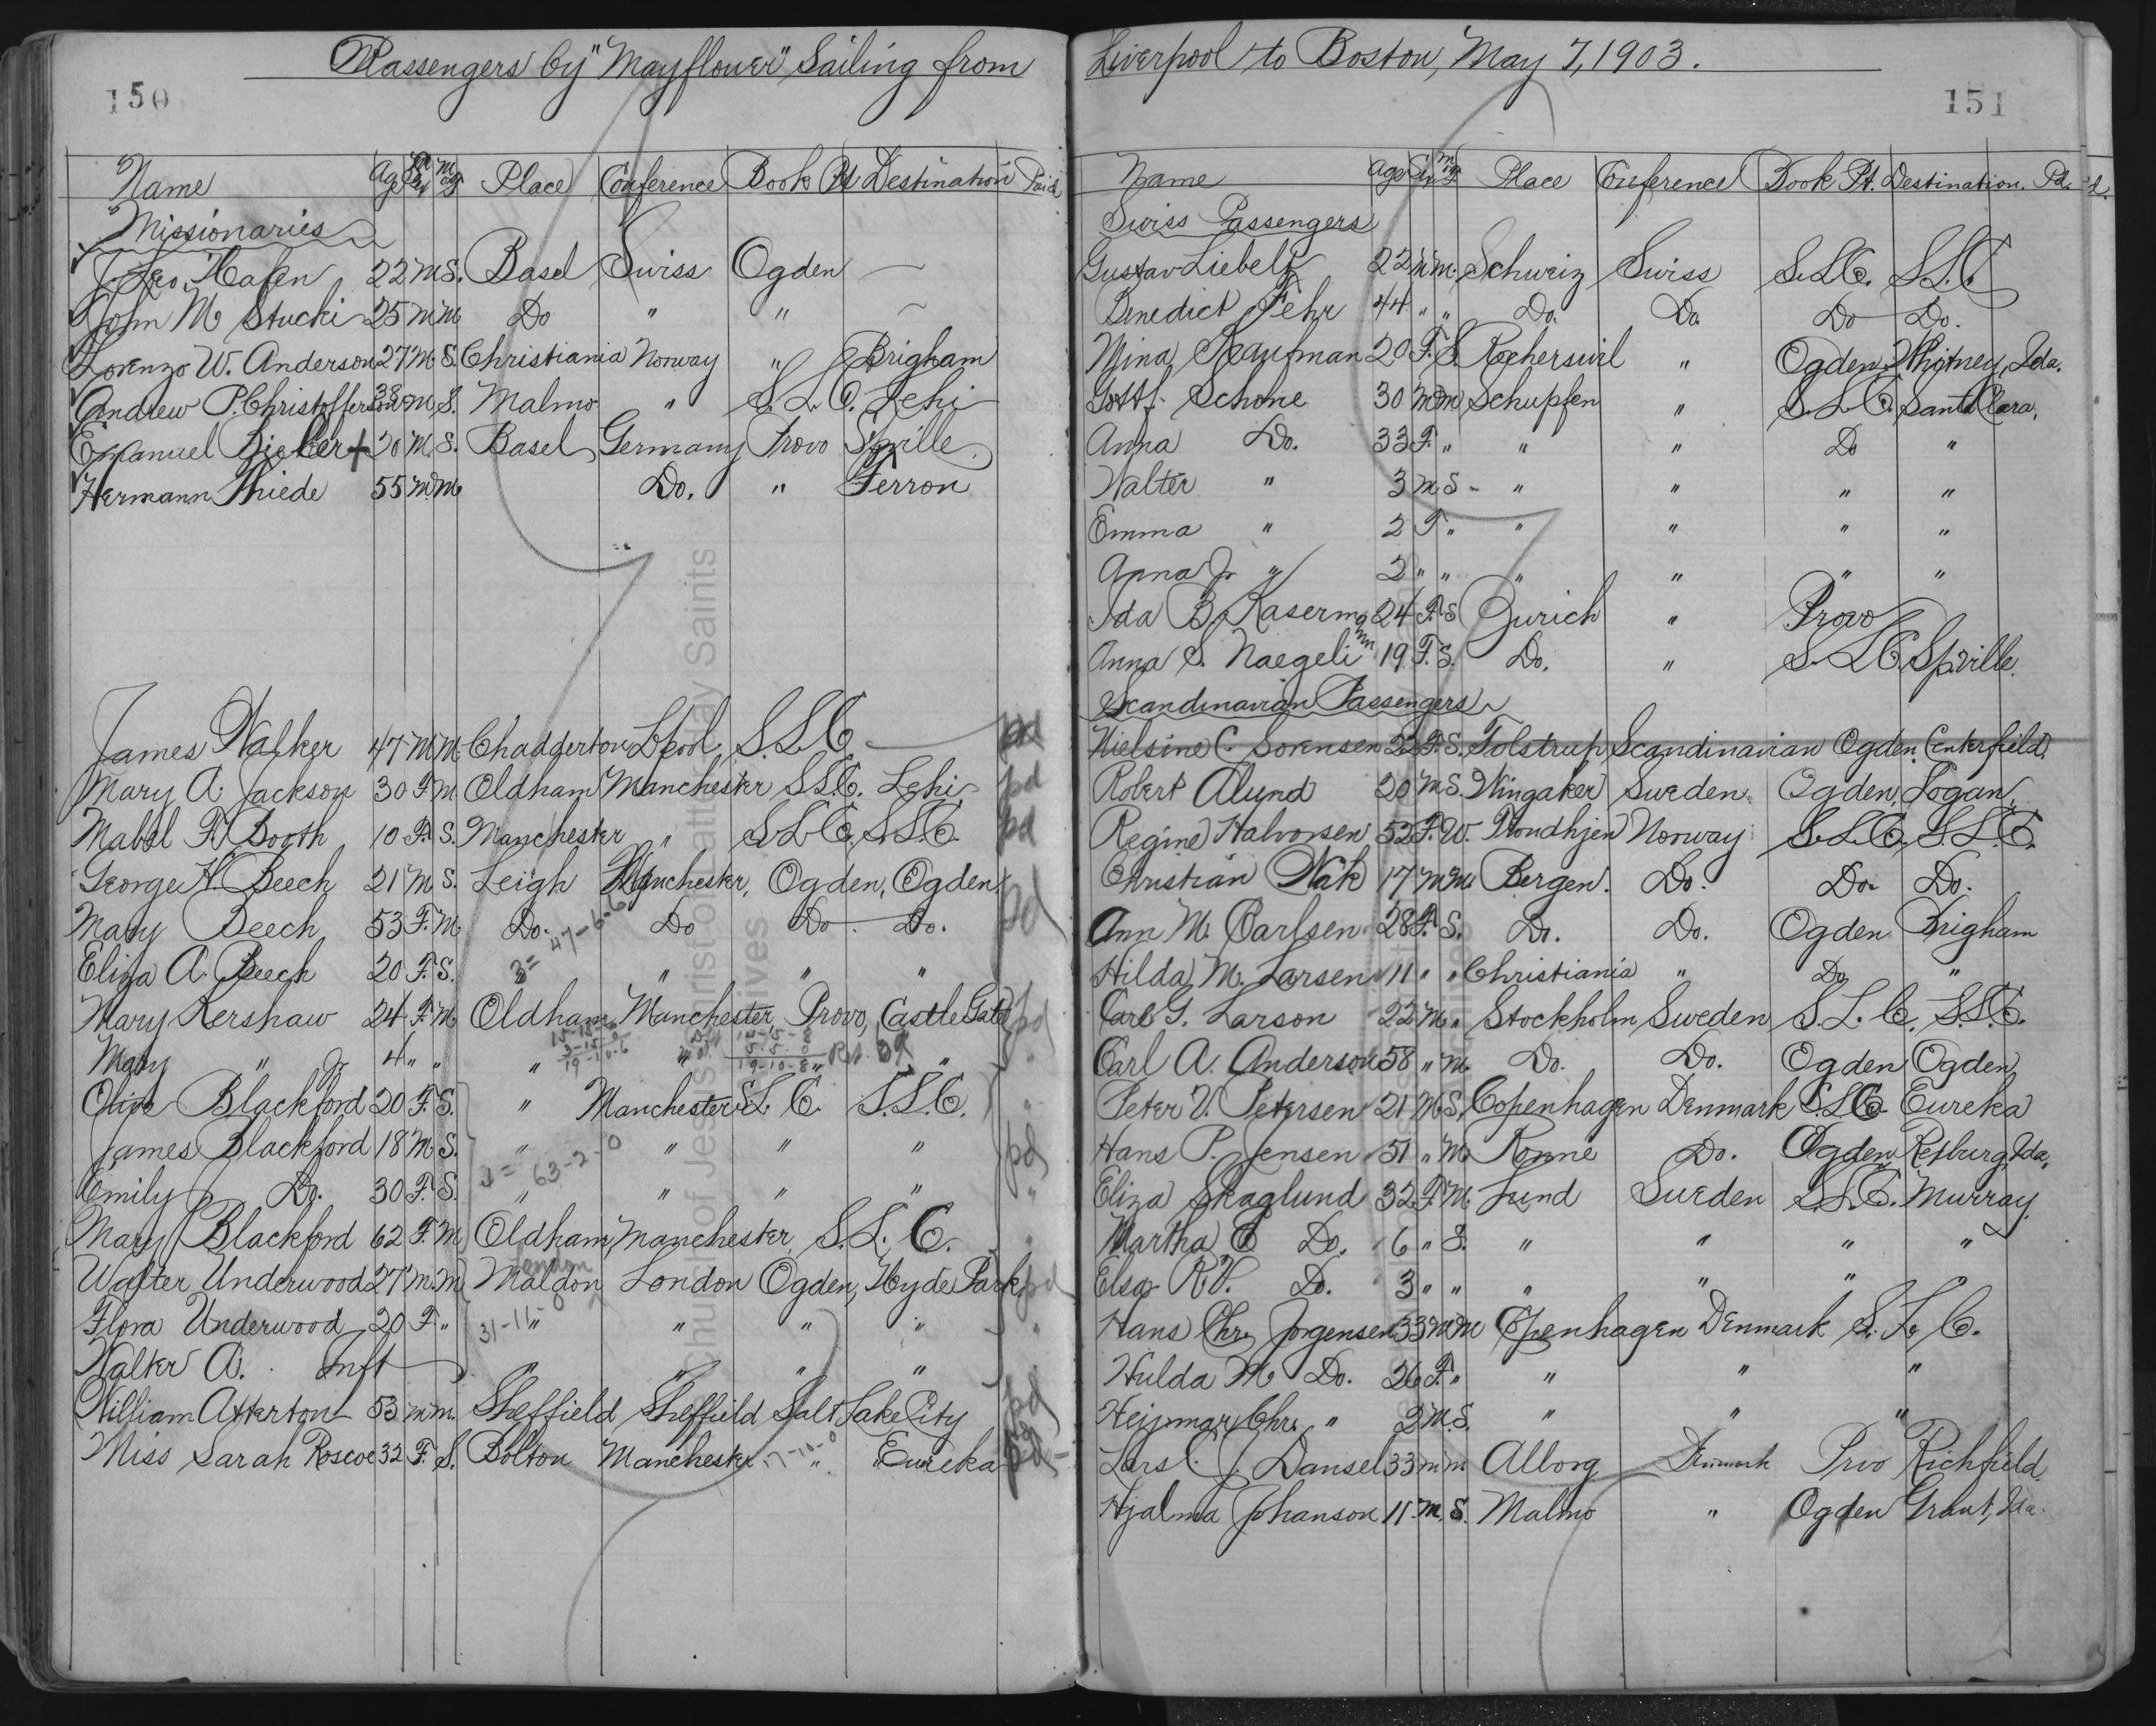 Passengers by "Mayflower" Sailing from
150
Name Age Sex Place Conference Book Pt Destination Paid
Missionaries
J. Leo. Hafen 22 M S. Basel Swiss Ogden —
John M Stucki 25 M M Do " " —
Lorenzo W. Anderson 27 M. S. Christiania Norway " Brigham
Andrew P. Christofferson M. S. Malmo " S. L. C. Lehi
Emanuel + 20 M. S. Basel Germany Provo Spville
Hermann Thiede 55 M. M. Do. " Ferron
James Walker 47 M. M. Chadderton Lpool, S. L. C. —
Mary A. Jackson 30 F. M. Oldham Manchester S. L. C. Lehi pd
Mabel F. Booth 10 F. S. Manchester " S. L. C. S. L. C. pd
George H. Beech 21 M S. Leigh Manchester, Ogden, Ogden. pd
Mary Beech 53 F. M. Do. Do Do. Do.
3 = 47-6-6
Eliza A. Beech 20 F. S. " " " "
Mary Kershaw 24 F. M. Oldham Manchester Provo, Castle Gate pd
Mary " Jr 4 " " " " "
19-10-6 19-10-8
Olive Blackford 20 F. S. " Manchester S. L. C. S. L. C. "
James Blackford 18 M. S. " " " " pd
63-2-0
Emily Do. 30 F. S. " " " " "
Mary Blackford 62 F. M. Oldham, Manchester, S. L. C. "
London
Walter Underwood 27 M. M. Maldon London Ogden, Hyde Park, pd
Flora Underwood 20 F " " " " " "
31-11-0
Walter A. Inft " " " "
William Atterton 53 m m. Sheffield Sheffield Salt Lake City pd
Miss Sarah Roscoe 32 F. S. Bolton Manchester " Eureka pd
17-10-0
Church of Jesus Christ of Latter-day Saints
Archives
Liverpool to Boston, May 7, 1903.
151
Name Age Place Conference Book Pt. Destination. Pd.
Swiss Passengers
Gustav 22 M M. Schweiz Swiss S. L. C. S. L. C.
Benedict Fehr 44 " " Do. Do. Do Do.
Mina Kaufman 20 F. S. " Ogden Whitney, Ida.
Gottf. Schone 30 M M Schupfen " S. L. C. Santa Clara,
Anna Do. 33 F. " " " Do "
Walter " 3 M S - " " " "
Emma " 2 F. " " " " "
Anna Jr " 2 " " " " " "
Ida B. Kasermann 24 F. S Zurich " Provo
Anna S. Naegeli 19 F. S. Do. " S. L. C. Sp.ville.
Scandinavian Passengers
Nielsine C. Sorensen F. S. Tolstrup Scandinavian Ogden, Centerfield.
Robert Alund 20 M S. Wingaker Sweden Ogden, Logan,
Regine Halvorsen 52 F. W. Trondhjem Norway S. L. C. S. L. C.
Christian 17 M M. Bergen. Do. Do. Do.
Ann M. Carlsen 28 F. S. Do. Do. Ogden Brigham
Hilda M. Larsen 11 " " Christiania " Do. "
Carl G. Larson 22 M " Stockholm Sweden S. L. C. S. L. C.
Carl A. Anderson 58 " M. Do. Do. Ogden Ogden,
Peter V. Petersen 21 M. S. Copenhagen Denmark S. L. C. Eureka
Hans P. Jensen 51 " M. Ronne Do. Ogden Rexburg, Ida,
Eliza Skaglund 32 F. M. Lund Sweden S. L. C. Murray.
Martha C Do. 6 " S. " " " "
Elsa R. V. Do. 3 " " " " " "
Hans Chr. Jorgensen 33 M M Copenhagen Denmark S. L. C.
Hulda M Do. 26 F. " " " "
Heijnmar Chr. " 2 M. S. " " "
Lars C. J. Dansel 33 m m Alborg Denmark Prvo Richfield
Hjalma Johanson 11 M. S. Malmo " Ogden Grant, Ida.